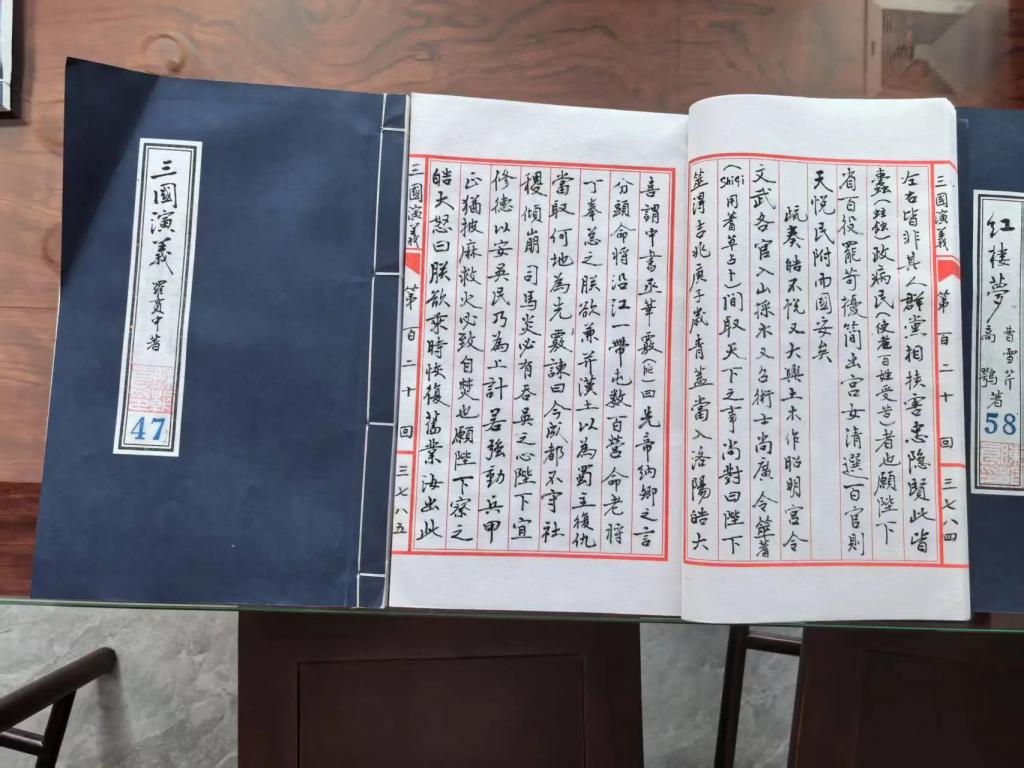 三國演義
羅貫中著
47
三國演義 第百二十回 三七八四
左右皆非其人群黨相挾害忠隐賢此皆
蠹(蛀蝕)政病民(使老百姓受苦)者也願陛下
省百役罷苛擾簡出宫女清選百官則
天悦民附而國安矣
疏奏皓不悦又大興土木作昭明宫令
文武各官入山採木又召術士尚廣令筮蓍
(Shiqi用蓍草占卜)間取天下之事尚對曰陛下
筮得吉兆庚子歲青蓋當入洛陽皓大
喜謂中書丞華覈曰先帝納卿之言
分頭命將沿江一帶屯数百營命老將
丁奉总之朕欲兼并漢土以為蜀主復仇
當取何地為先覈諫曰今成都不守社
稷傾崩司馬炎必有吞吴之心陛下宜
修德以安吴民乃為上計若強動兵甲
正猶披麻救火必致自焚也願陛下察之
皓大怒曰朕欲乘時恢復舊業汝出此
三國演義 第百二十回 三七八五
红楼夢
曹雪芹
高鶚著
58